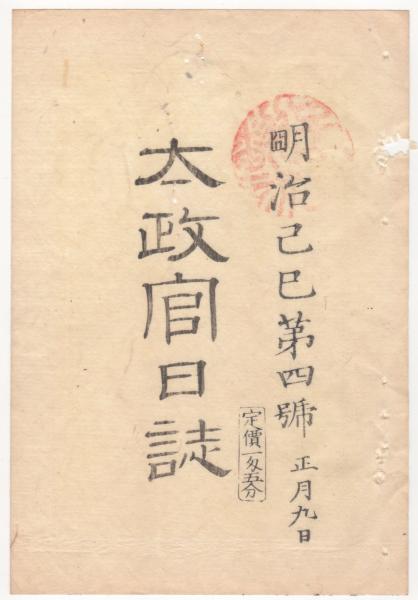 明治己巳第四號 正月九日
太政官日誌
定價一匁五分